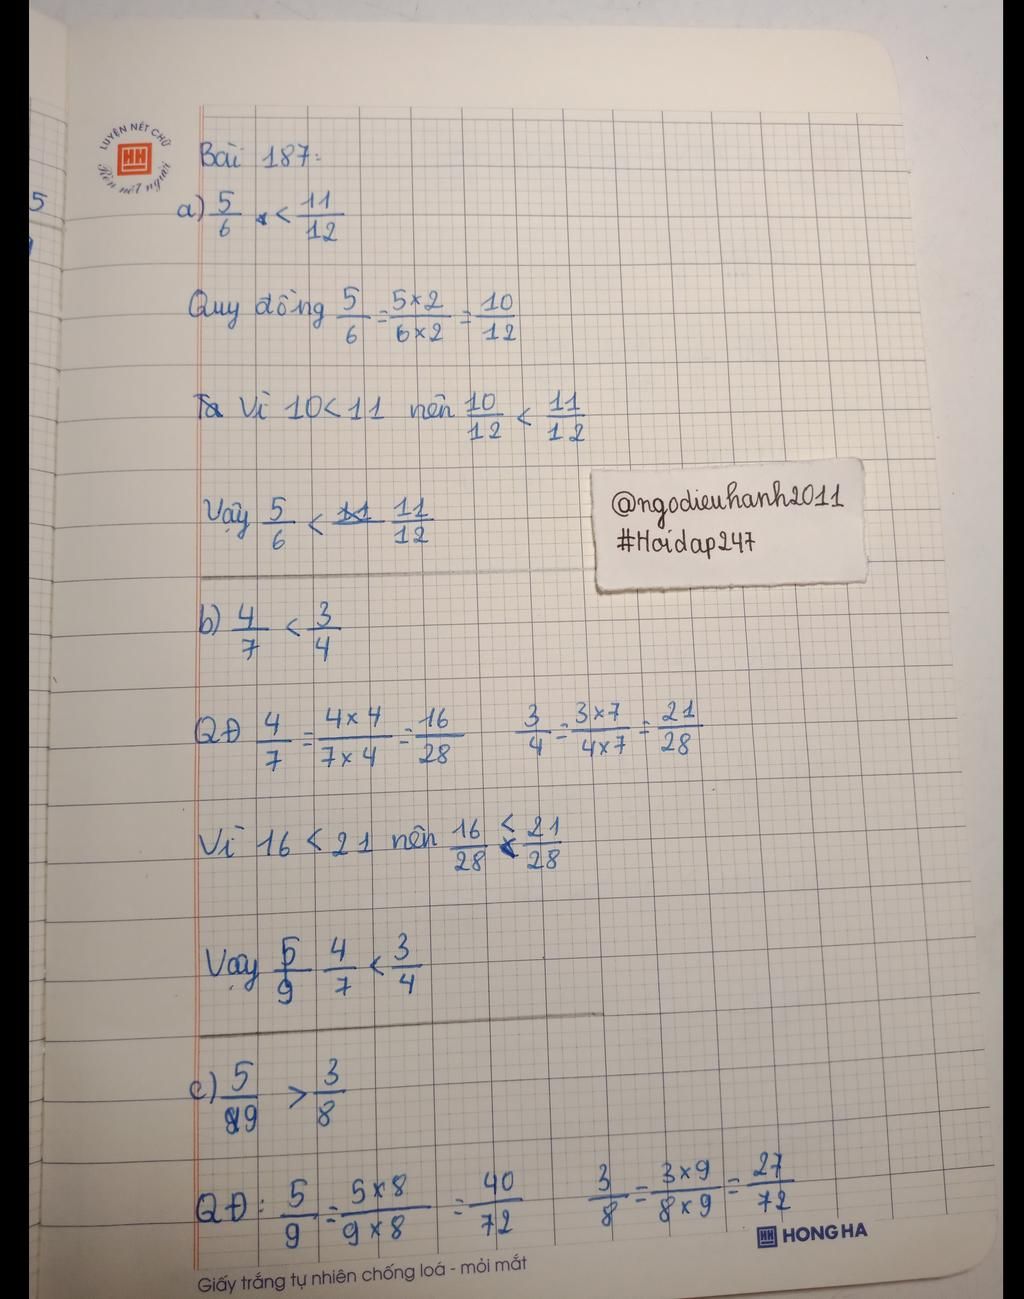 LUYỆN NÉT CHỮ
HH
Rèn nết người
5
Bài 187:
a) 5/6 < 11/12
Quy đồng 5/6 = 5×2/6×2 = 10/12
Ta Vì 10 < 11 nên 10/12 < 11/12
Vậy 5/6 < 11 11/12
@ngodieuhanh2011
#Hoidap247
b) 4/7 < 3/4
QĐ 4/7 = 4×4/7×4 = 16/28 3/4 = 3×7/4×7 = 21/28
Vì 16 < 21 nên 16/28 < 21/28
Vậy 5/9 4/7 < 3/4
c) 5/9 > 3/8
QĐ: 5/9 = 5×8/9×8 = 40/72 3/8 = 3×9/8×9 = 27/72
HH HONG HA
Giấy trắng tự nhiên chống loá - mỏi mắt